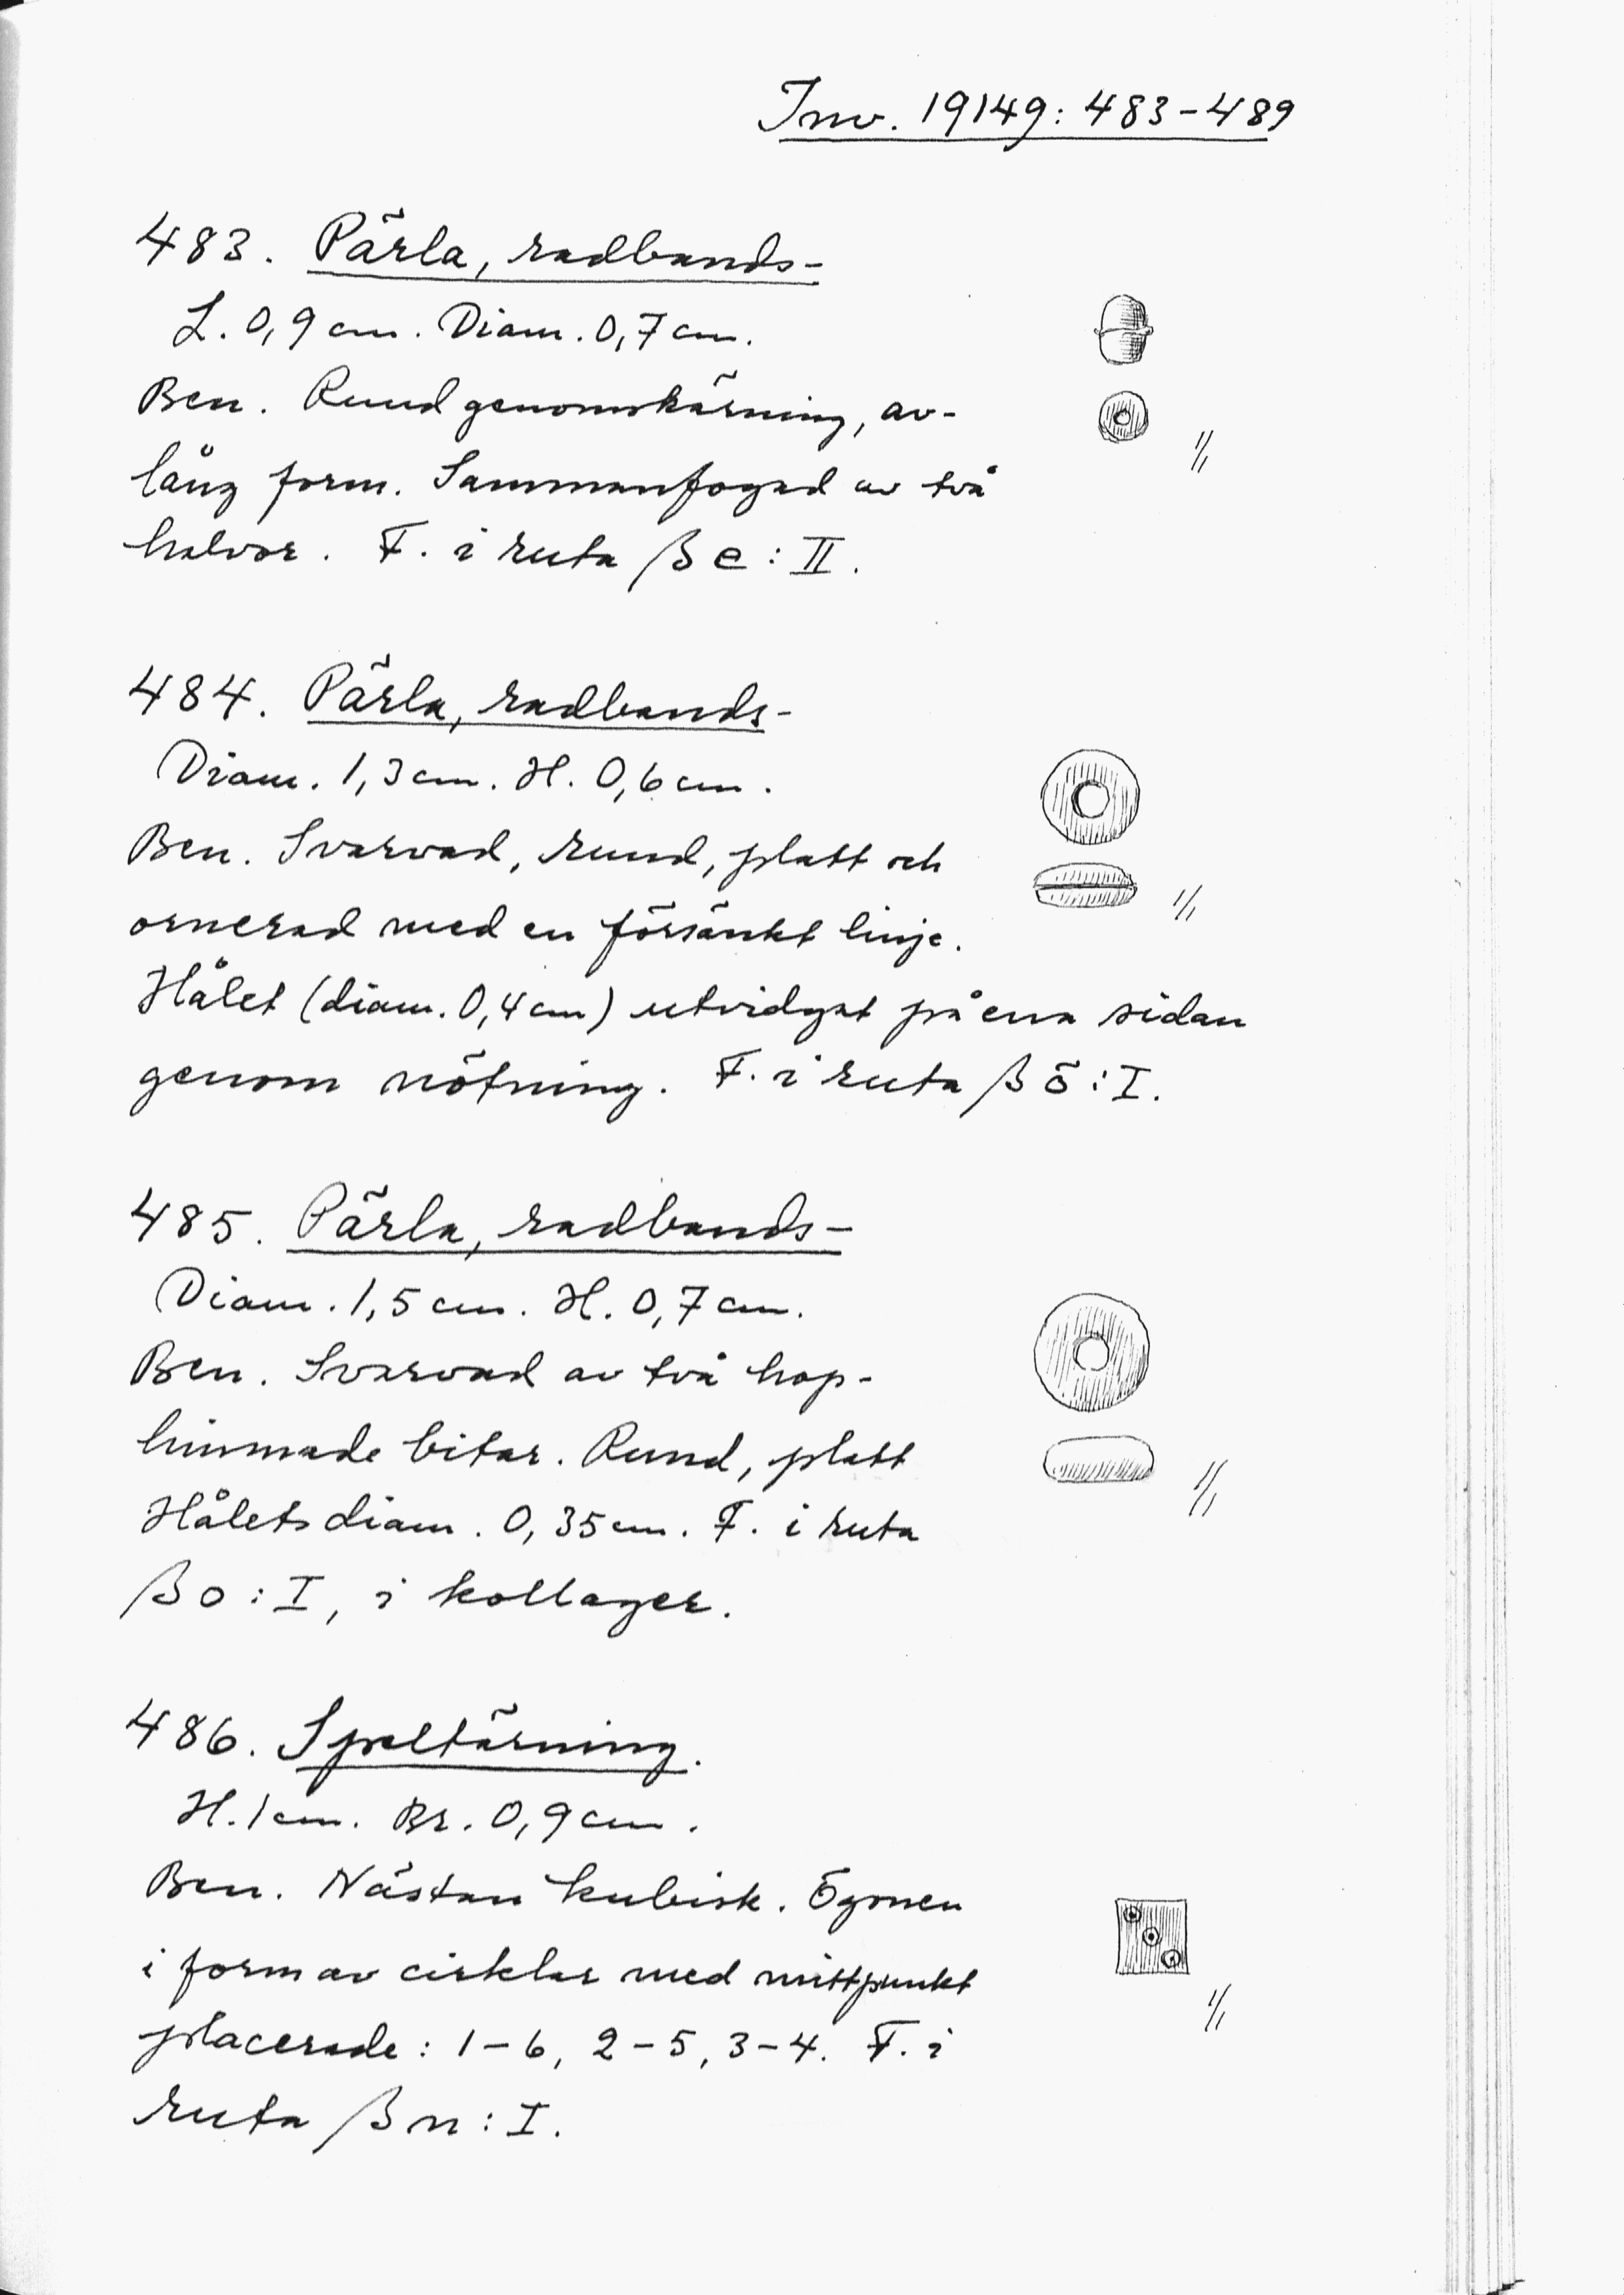 Inv. 19149: 483-489
483. Pärla, radbands-
L. 0,9 cm. Diam. 0,7 cm.
Ben. Rund genomskärning, av-
lång form. Sammanfogad av två
halvor. F. i ruta β e : II.
1/1
484. Pärla, radbands-
Diam. 1,3 cm. H. 0,6 cm.
Ben. Svarvad, rund, platt och
ornerad med en försänkt linje.
1/1
Hålet (diam. 0,4 cm) utvidgat på ena sidan
genom nötning. F. i ruta β ö : I.
485. Pärla, radbands-
Diam. 1,5 cm. H. 0,7 cm.
Ben. Svarvad av två hop-
limmade bitar. Rund, platt
Hålets diam. 0,35 cm. F. i ruta
1/1
β o : I, i kollager.
486. Speltärning.
H. 1 cm. Br. 0,9 cm.
Ben. Nästan kubisk. Ögonen
i form av cirklar med mittpunkt
placerade: 1-6, 2-5, 3-4. F. i
1/1
ruta β n : I.